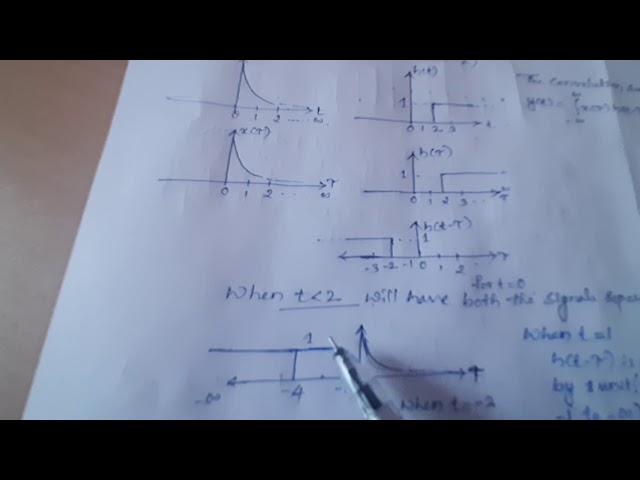 h(t)
1
0 1 2 3 t
0 1 2 ..... ∞ t
The convolution
x(τ)
y(t) = ∫
0 1 2 ..... ∞ τ
h(τ)
1
0 1 2 3 ... ∞ τ
h(t-τ)
1
-3 -2 -1 0 1 2 τ
for t=0
When t<2 will have both the signals
1
When t=1
h(t-τ) is
-∞ -4 τ
by 1 unit
When t=-2
-1 to -∞